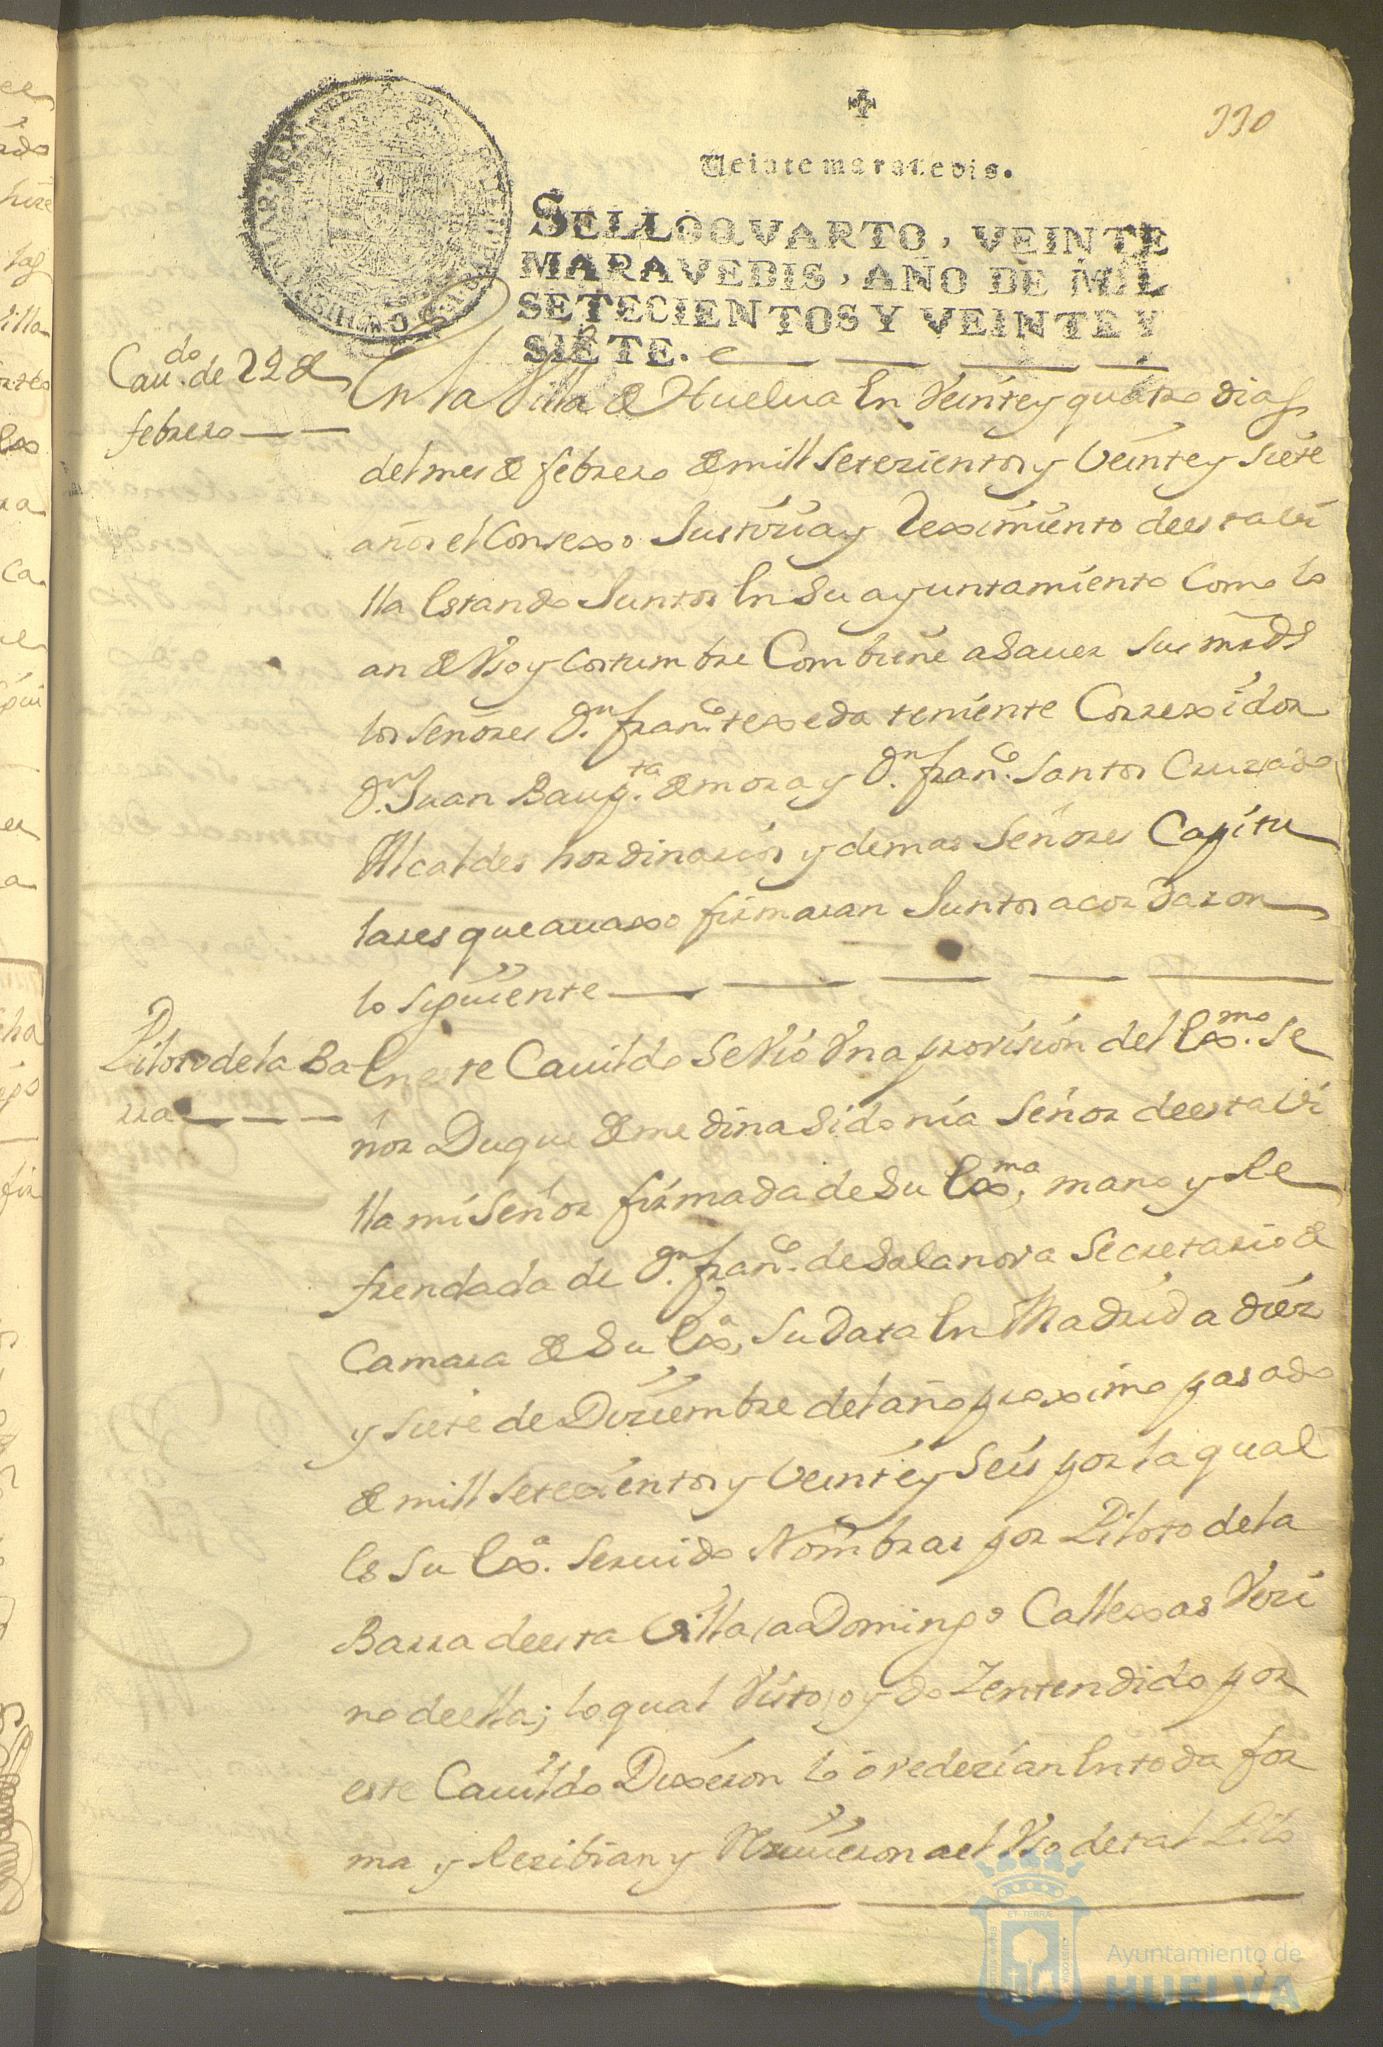 330
Veinte maravedis.
SELLO QVARTO, VEINTE
MARAVEDIS, AÑO DE MIL
SETECIENTOS Y VEINTE Y
SIETE.
Cau.do de 22 de
febrero
En la Villa de Huelua En Veinte y quatro dias
del mes de febrero de mill setezientos y Veinte y siete
años el Consexo Justizia y Reximiento de esta Vi
lla Estando Juntos En su ayuntamiento Como lo
an de Vso y Costumbre Combiene a sauer sus mrds
los señores Dn. franco. texeda teniente Correxidor
Dn. Juan Baupta. de mora y Dn. franco. Santos Cruzado
Alcaldes hordinarios y demas Señores Capitu
lares que auaxo firmaran Juntos acordaron
lo siguiente
Piloto de la Ba
rra
En este Cauildo se Vio Vna provision del Exmo. Se
ñor Duque de medina Sidonia Señor de esta Vi
lla mi Señor firmada de su Exma, mano y Re
frendada de Dn. franco. de Salanova Secretario de
Camara de Su Exa, Su Data En Madrid a diez
y siete de Diziembre del año proximo pasado
de mill setezientos y Veinte y Seis por la qual
Es Su Exa. Seruido Nombrar por Piloto de la
Barra de esta Villa a Domingo Callexas Vezi
no de ella; lo qual Visto, oydo Y entendido por
este Cauildo Dixeron lo ovedezian En toda for
ma y Reziuian y Reziuieron a el Vso de tal Pilo
Ayuntamiento de
HUELVA